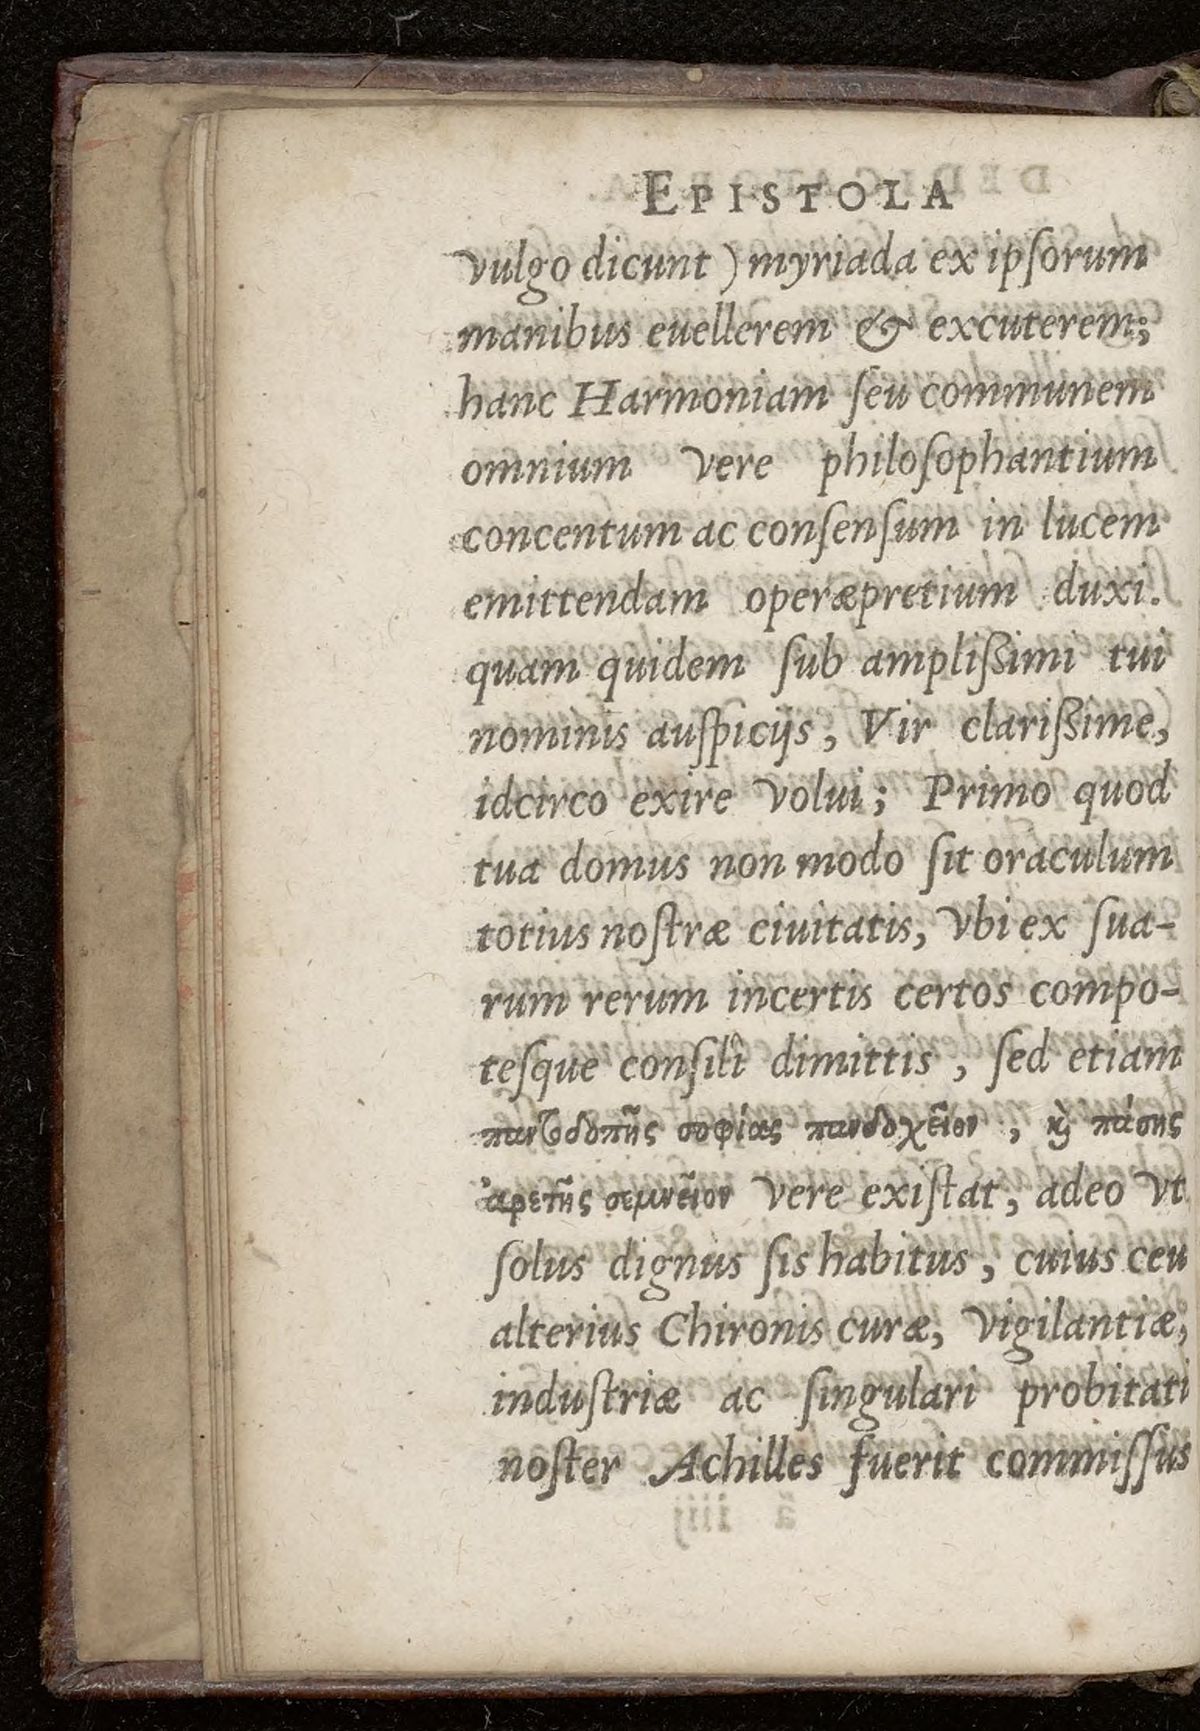 EPISTOLA
vulgo dicunt) myriada ex ipſorum
manibus euellerem & excuterem;
hanc Harmoniam ſeu communem
omnium vere philoſophantium
concentum ac conſenſum in lucem
emittendam operæpretium duxi.
quam quidem ſub ampliſſimi tui
nominis auſpicijs, Vir clariſſime,
idcirco exire volui; Primo quod
tua domus non modo ſit oraculum
totius noſtræ ciuitatis, vbi ex ſua-
rum rerum incertis certos compo-
teſque conſilî dimittis, ſed etiam
παντοδαπῆς σοφίας πανδοχεῖον, ϗ πάσης
ἀρετῆς σεμνεῖον vere exiſtat, adeo vt
ſolus dignus ſis habitus, cuius ceu
alterius Chironis curæ, vigilantiæ,
induſtriæ ac ſingulari probitati
noſter Achilles fuerit commiſſus